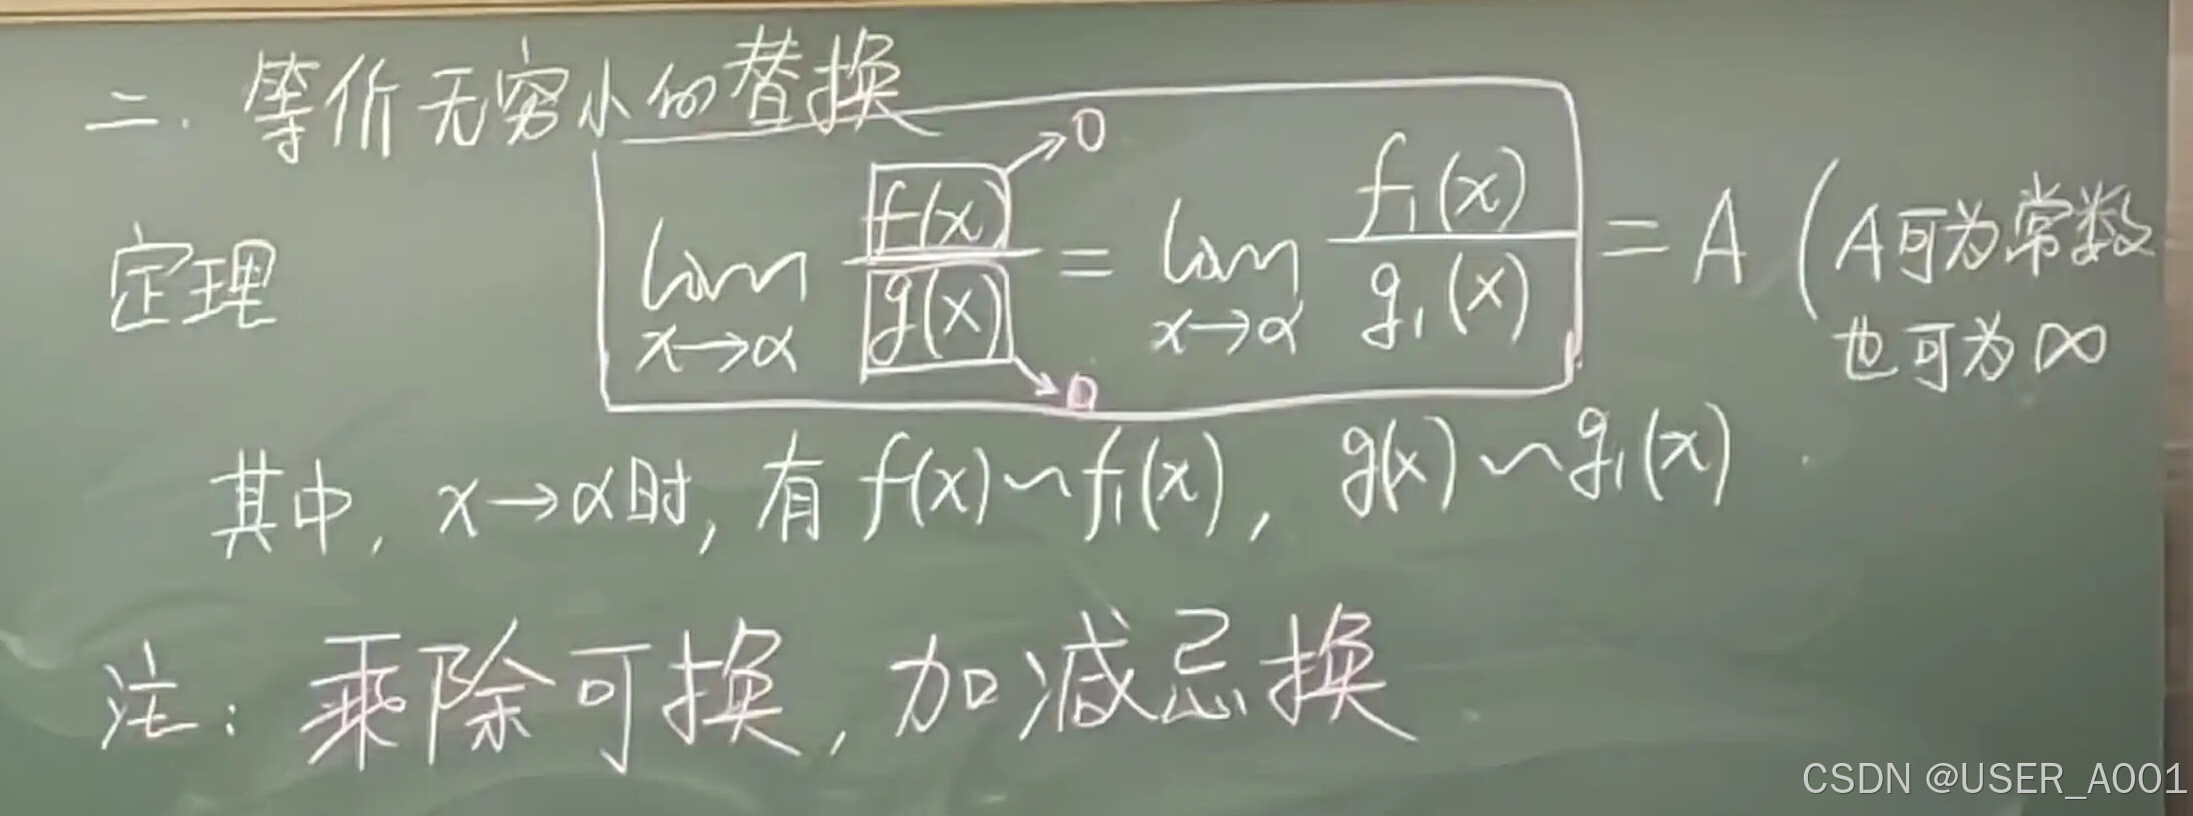 二. 等价无穷小的替换
定理 lim x→α f(x)→0 / g(x)→0 = lim x→α f₁(x) / g₁(x) = A (A可为常数
也可为∞
其中, x→α时, 有 f(x)~f₁(x), g(x)~g₁(x).
注: 乘除可换, 加减忌换
CSDN @USER_A001